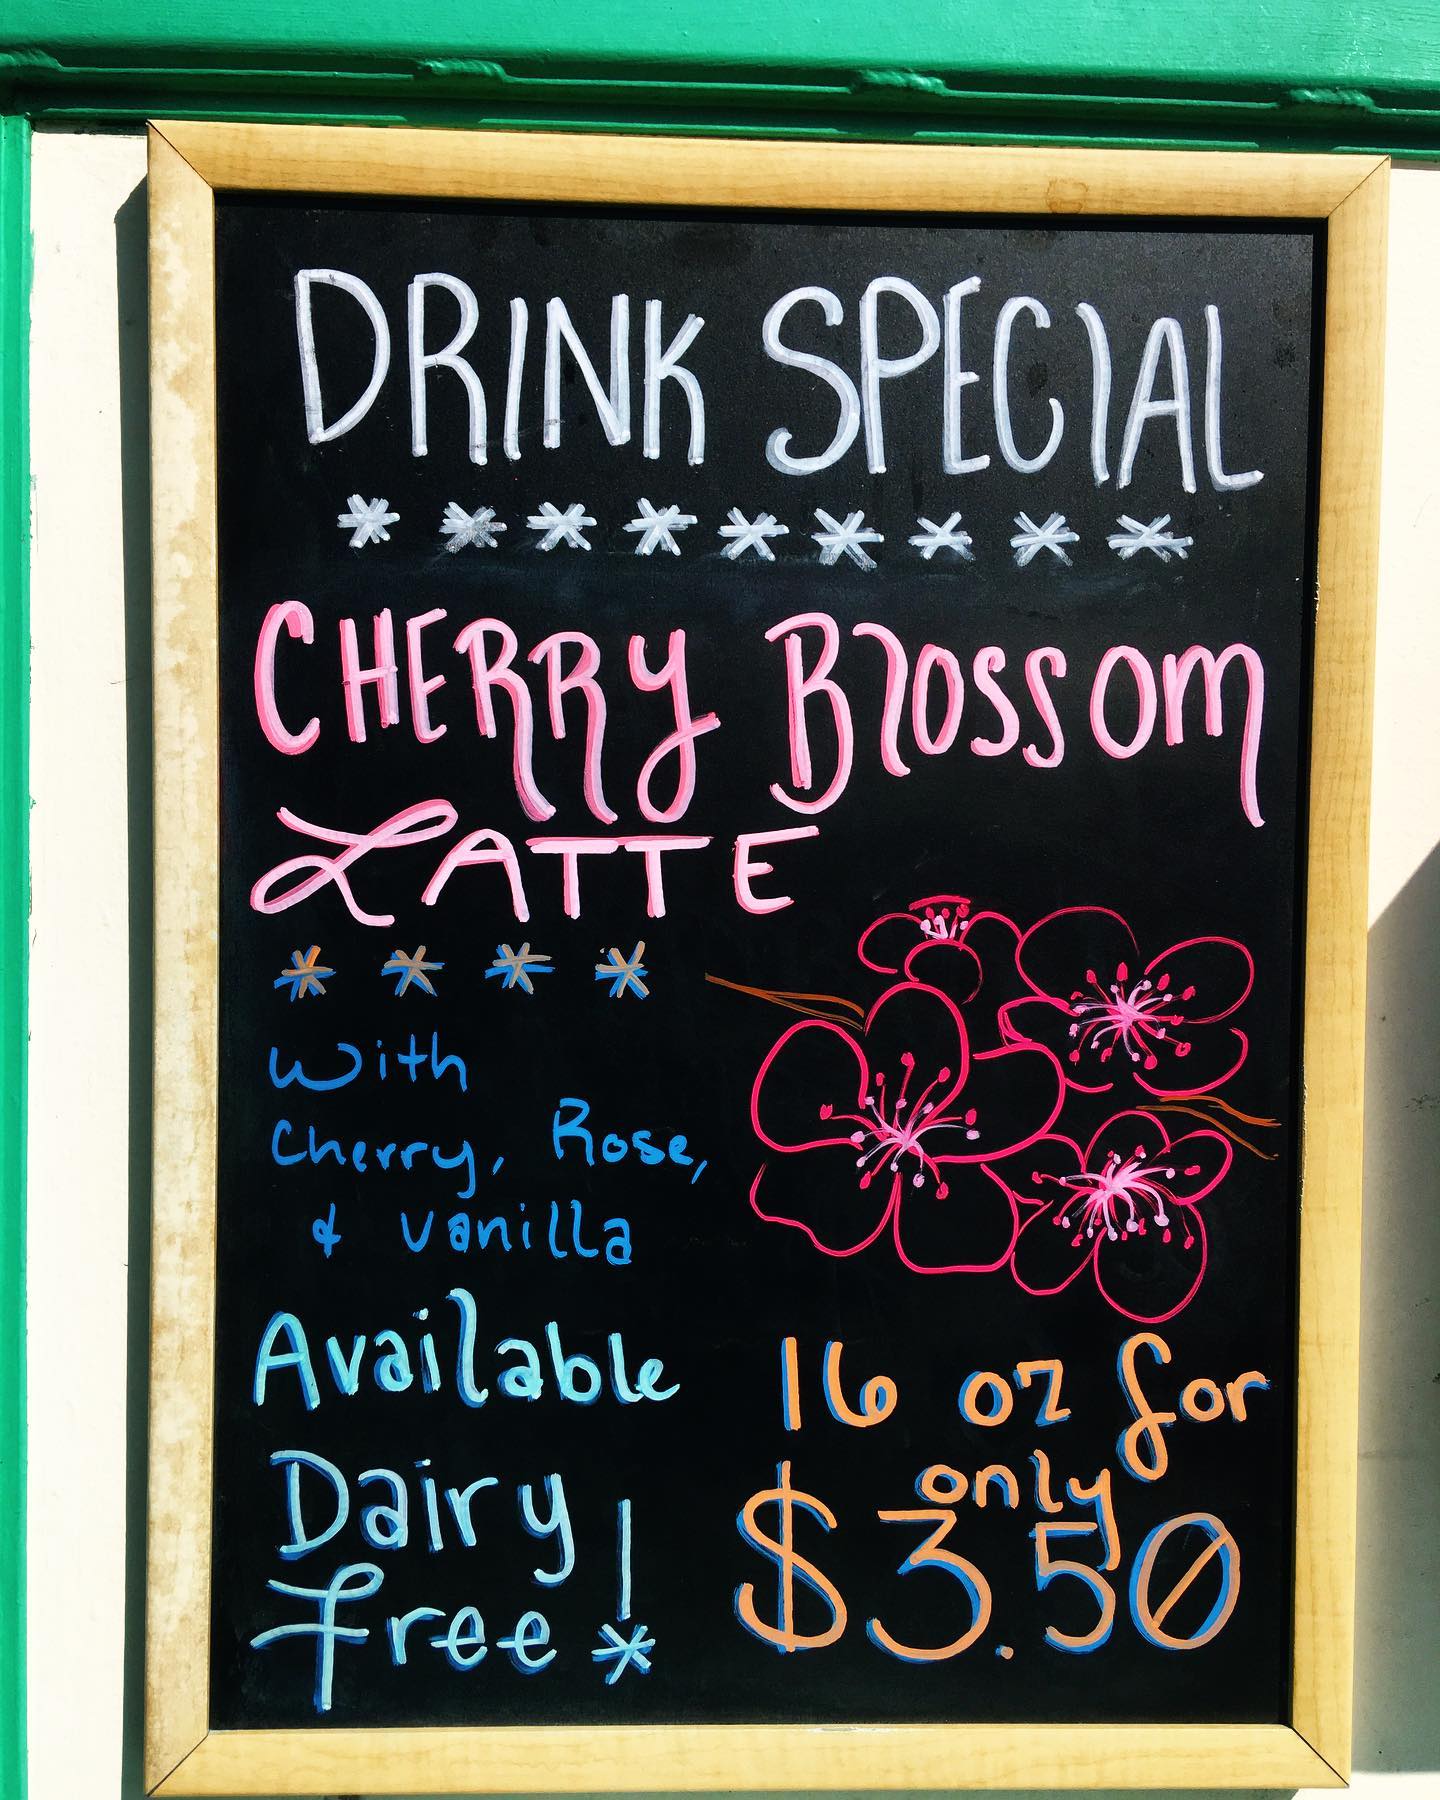 DRINK SPECIAL
* * * * * * * * *
CHERRY BLOSSOM
LATTE
* * * *
With
Cherry, Rose,
& vanilla
Available
Dairy
Free!
16 oz for
only
$3.50